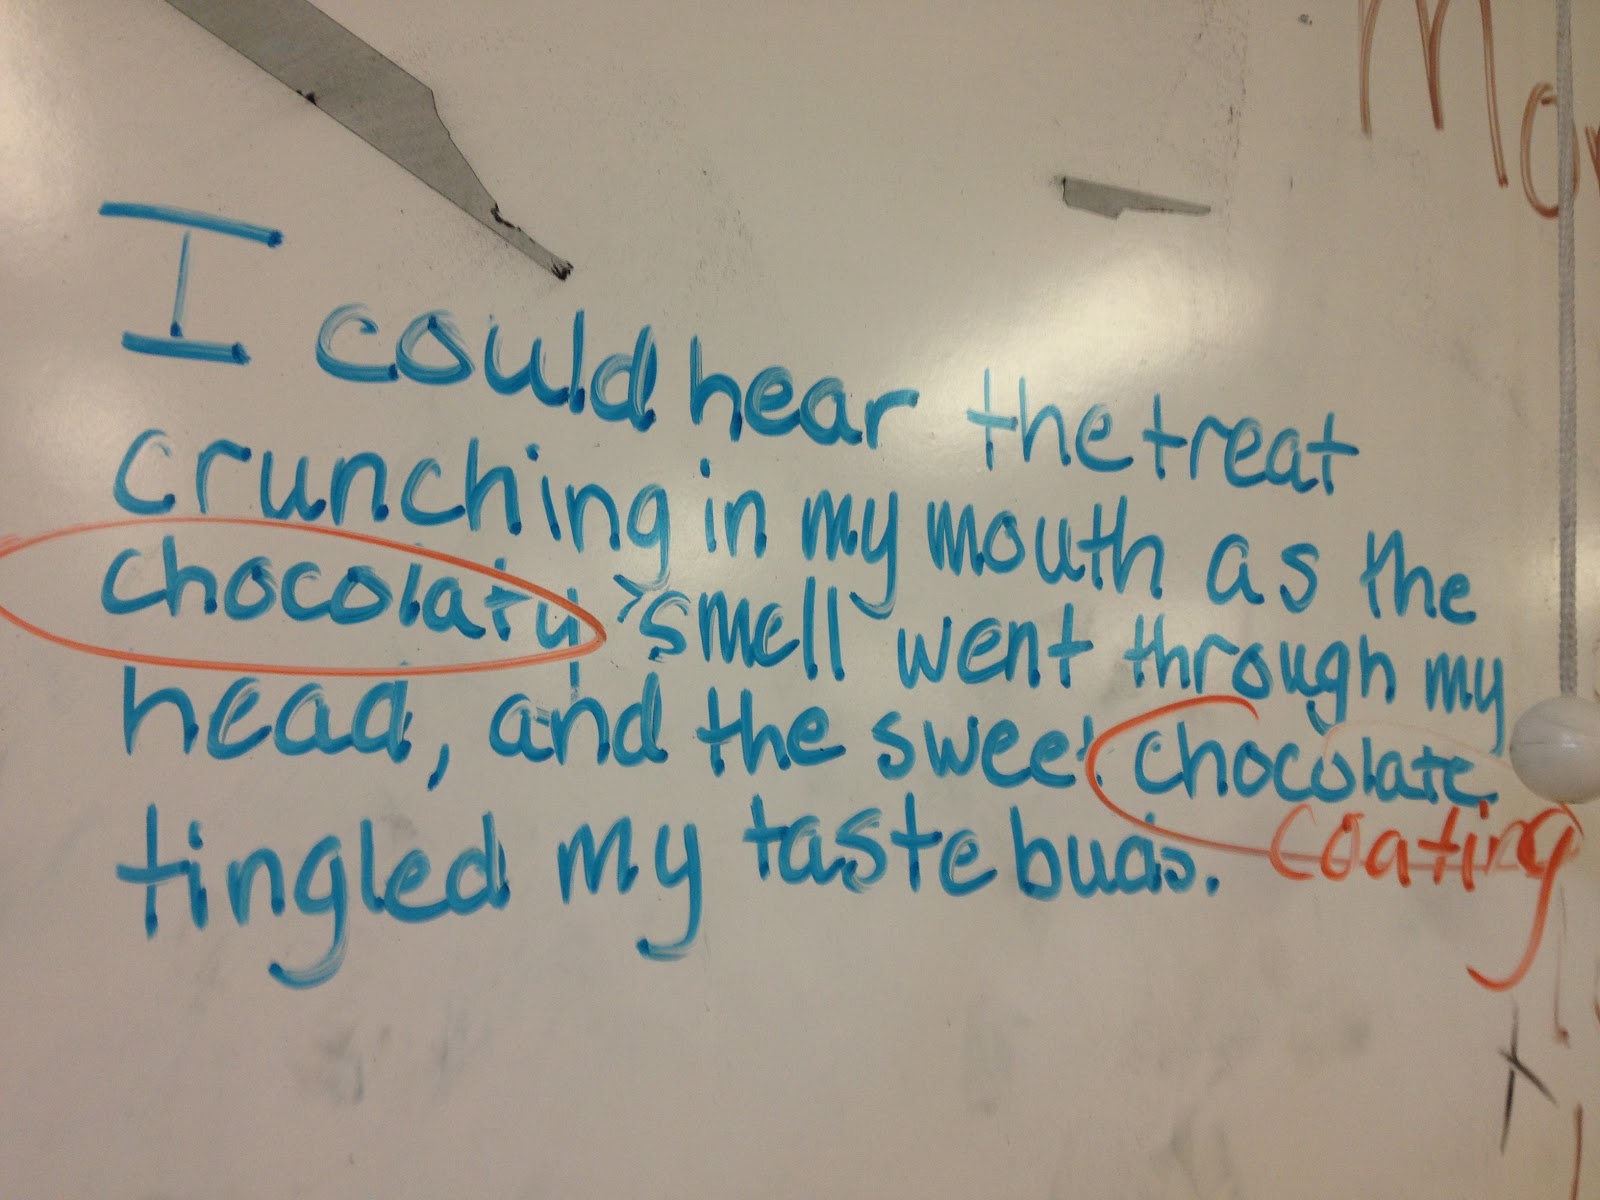 I could hear the treat
crunching in my mouth as the
chocolaty smell went through my
head, and the sweet chocolate
coating
tingled my taste buds.